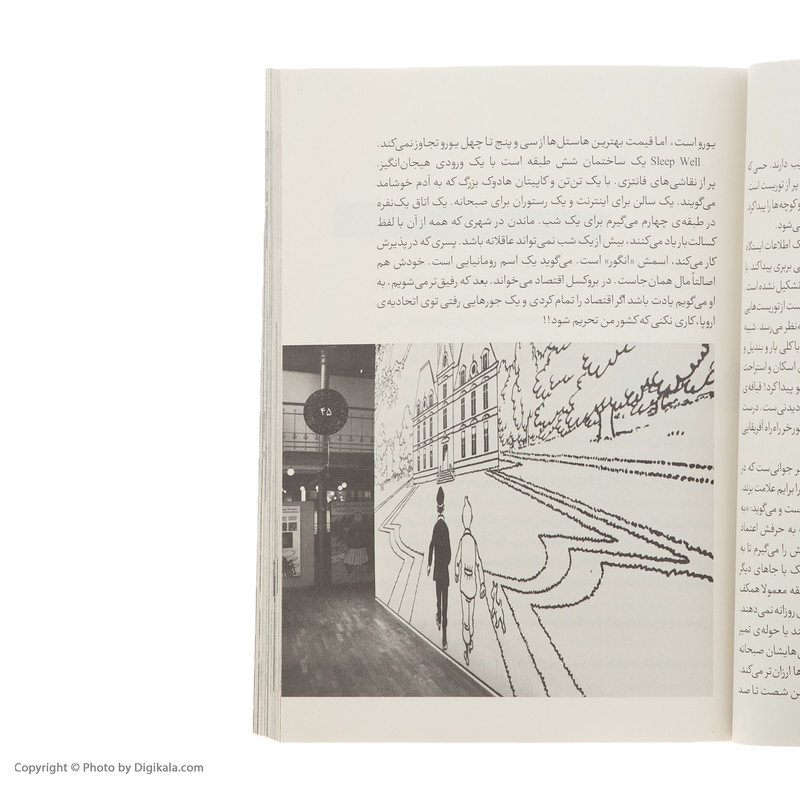 یورو است، اما قیمت بهترین هاستل‌ها از سی و پنج تا چهل یورو تجاوز نمی‌کند.
Sleep Well یک ساختمان شش طبقه است با یک ورودی هیجان‌انگیز.
پر از نقاشی‌های فانتزی. با یک تن‌تن و کاپیتان هادوک بزرگ که به آدم خوشامد
می‌گویند. یک سالن برای اینترنت و یک رستوران برای صبحانه. یک اتاق یک‌نفره
در طبقه‌ی چهارم می‌گیرم برای یک شب. ماندن در شهری که همه از آن با لفظ
کسالت‌بار یاد می‌کنند، بیش از یک شب نمی‌تواند عاقلانه باشد. پسری که در پذیرش
کار می‌کند، اسمش «انگور» است. می‌گوید یک اسم رومانیایی است. خودش هم
اصالتاً مال همان جاست. در بروکسل اقتصاد می‌خواند. بعد که رفیق‌تر می‌شویم، به
او می‌گویم یادت باشد اگر اقتصاد را تمام کردی و یک جورهایی رفتی توی اتحادیه‌ی
اروپا، کاری نکنی که کشور من تحریم شود!!
۴۵
یب دارند. حسی که
پر از توریست است.
و کوچه‌ها را پیدا کرد.
ی‌شود.
ک اطلاعات ایستگاه
ی بربری پیدا کند. با
تشکیل نشده است.
ست از توریست‌هایی
ه‌نظر می‌رسد. شبیه
با کلی بار و بندیل و
ی اسکان و استراحت
و پیدا کرد! قیافه‌ی
دیدنی‌ست. درست
ورخر راه‌راه آفریقایی
ر جوانی‌ست که در
را برایم علامت بزند.
ست و می‌گوید: «به
ه به حرفش اعتماد
ش را می‌گیرم تا به
ک با جاهای دیگر
قه معمولا همکف
ی روزانه نمی‌دهند.
ند یا حوله‌ی تمیز
ی‌هایشان صبحانه
ها ارزان‌تر می‌کند.
ن شصت تا صد
Copyright © Photo by Digikala.com